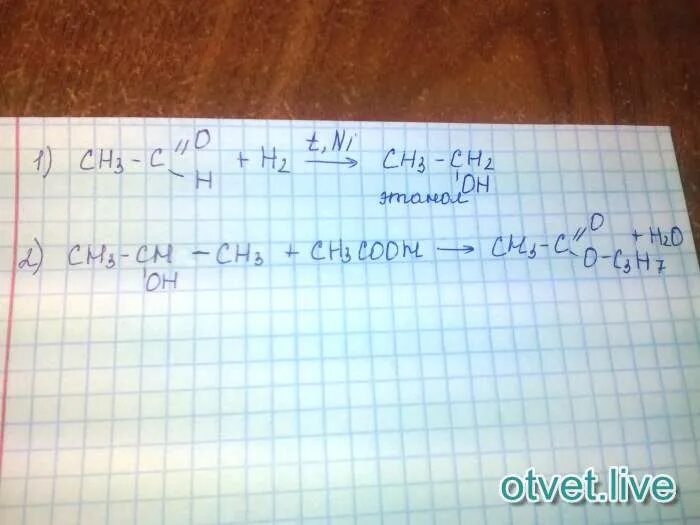 1) CH3-C(=O)-H + H2 t, Ni → CH3-CH2-OH
этанол
2) CH3-CH(OH)-CH3 + CH3COOH → CH3-C(=O)-O-C3H7 + H2O
otvet.live